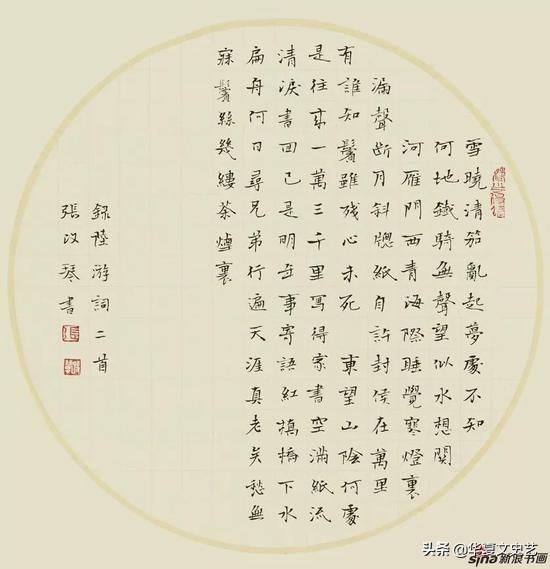 雪曉清笳亂起夢處不知
何地鐵騎無聲望似水想關
河雁門西青海際睡覺寒燈裏
漏聲斷月斜牕紙自許封侯在萬里
有誰知鬢雖殘心未死 東望山陰何處
是往來一萬三千里寫得家書空滿紙流
清淚書回已是明年事寄語紅橋橋下水
扁舟何日尋兄弟行遍天涯真老矣愁無
寐鬢絲幾縷茶煙裏
錄陸游詞二首
張改琴書
头条 @华夏文史艺
sina新浪书画